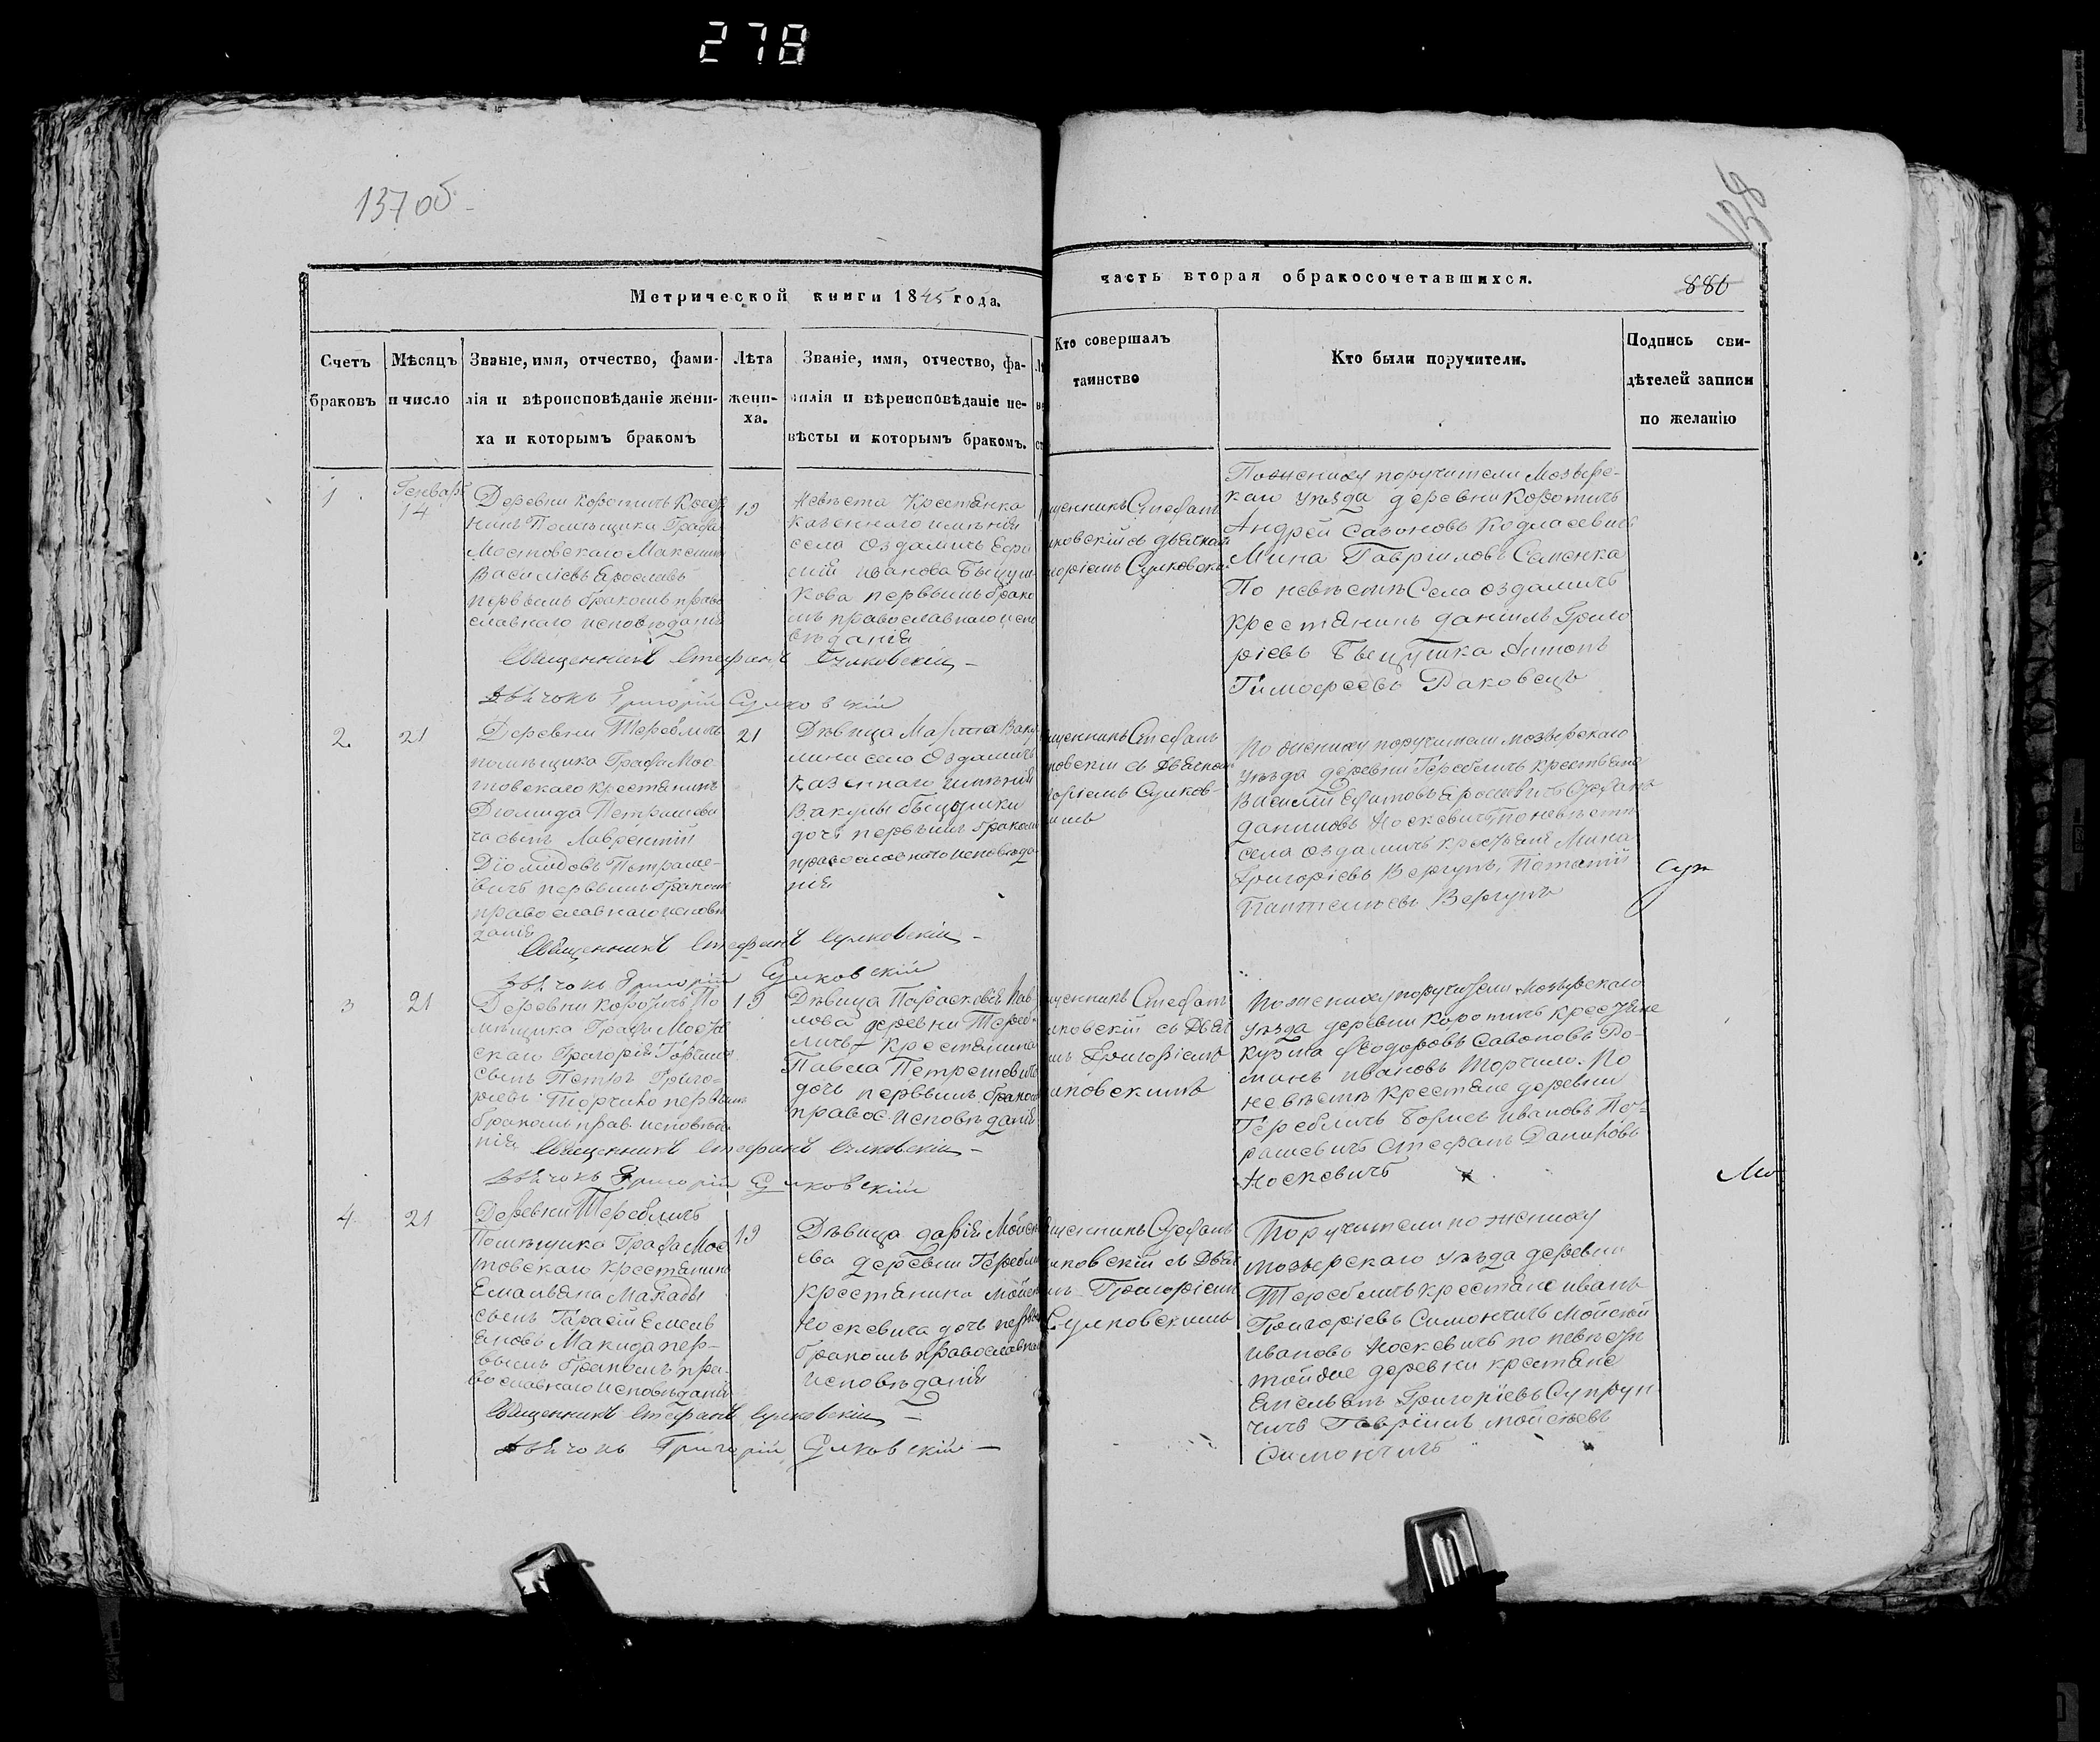 278
137 об
138
Метрической книги 1845 года.
часть вторая обракосочетавшихся.
886
Счетъ
браковъ
Мѣсяцъ
и число
Званіе, имя, отчество, фами-
лія и вѣроисповѣданіе жени-
ха и которымъ бракомъ
Лѣта
жени-
ха.
Званіе, имя, отчество, фа-
милія и вѣроисповѣданіе не-
вѣсты и которымъ бракомъ.
Кто совершалъ
таинство
Кто были поручители.
Подпись сви-
дѣтелей записи
по желанію
1
Генваря
14
Деревни Коротичъ
Помѣщика Графа
Мостовскаго Максимъ
Василіевъ
первымъ бракомъ право
славнаго исповѣданія
19
Невѣста крестянка
казеннаго имѣнія
села Оздамичъ
Иванова
кова первымъ брако
мъ православнаго испо
вѣданія
щенникъ Стефанъ
лковскій съ дьячком
горіемъ Сулковски
поручители Мозырс-
каго уѣзда деревни Коротичъ
Андрей Сазоновъ
Мина Гавріиловъ Саменка
По невѣстѣ Села Оздамичъ
крестянинъ Даніилъ Григо
ріевъ Антонъ
Тимофеевъ Раковецъ
Священникъ Стефанъ Сулковскій
Дьячокъ Григорій Сулковскій
2.
21
Деревни Теребличъ
помѣщика Графа Мос
товскаго крестянинъ
Діомида Петрашеви
ча сынъ Лаврентій
Діомидовъ Петраше-
вичъ первымъ бракомъ
православнаго исповѣ
данія
21
Дѣвица Марта Ваку
лина села Оздамичъ
казеннаго имѣнія
Вакулы
дочь первымъ бракомъ
православнаго исповѣда
нія
щенникъ Стефанъ
ковскій съ Дьячком
горіемъ Сулков-
имъ
По жениху поручители мозырскаго
уѣзда деревни Теребличъ крестьяне
Василій
Даниловъ Носкевичъ по невѣстѣ
села Оздамичъ крестьяне Мина
Григоріевъ Вергунъ, Потапій
Пантелеевъ Вергунъ
Священникъ Стефанъ Сулковскій
Дьячокъ Григорій Сулковскій
3
21
Деревни Коротичъ По
мѣщика Графа Мостов
скаго Григорія Торчила
сынъ Петръ Григо-
ріевъ Торчило первымъ
бракомъ прав. исповѣда
нія
19
Дѣвица Параскевія Пав
лова деревни Тереб-
личъ крестянина
Павла Петрашевича
дочь первымъ бракомъ
правос. исповѣданія
щенникъ Стефанъ
лковскій съ Дьяч
мъ Григоріемъ
лковскимъ
По жениху поручители Мозырскаго
уѣзда деревни Коротичъ крестяне
Кузма Феодоровъ Савоновъ Ро-
манъ Ивановъ Торчило. По
невѣстѣ крестяне деревни
Теребличъ Борисъ Ивановъ
рашевичъ Стефанъ Даниловъ
Носкевичъ
Священникъ Стефанъ Сулковскій
Дьячокъ Григорій Сулковскій
4.
21
Деревни Теребличъ
Помѣщика Графа Мос
товскаго крестянина
Емельяна Макады
сынъ Гарасій Емель
яновъ Макида пер-
вымъ бракомъ пра-
вославнаго исповѣданія
19
Дѣвица Дарія Мойсе
ева деревни Теребли
крестянина Мойсе
Носкевича дочь первым
бракомъ православна
исповѣданія
щенникъ Стефанъ
лковскій съ Дьяч
мъ Григоріемъ
Сулковскимъ
Поручители по жениху
мозырскаго уѣзда деревни
Теребличъ крестяне Иванъ
Григоріевъ Симончичъ Мойсей
Ивановъ Носкевичъ по невѣстѣ
тойже деревни крестяне
Емельянъ Григоріевъ Супрун
чичъ Гавріилъ Мойсеевъ
Симончичъ
Священникъ Стефанъ Сулковскій
Дьячокъ Григорій Сулковскій